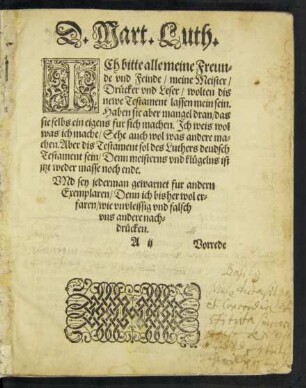 D. Mart. Luth.
ICh bitte alle meine Freun-
de vnd Feinde / meine Meister /
Drücker vnd Leser / wolten dis
newe Testament lassen mein sein.
Haben sie aber mangel dran / das
sie selbs ein eigens fur sich machen. Ich weis wol
was ich mache / Sehe auch wol was andere ma-
chen. Aber dis Testament sol des Luthers deudsch
Testament sein / Denn meisterns vnd klügelns ist
jtzt weder masse noch ende.
VNd sey jederman gewarnet fur andern
Exemplaren / Denn ich bisher wol er-
faren / wie vnvleissig vnd falsch
vns andere nach-
drücken.
A ij Vorrede